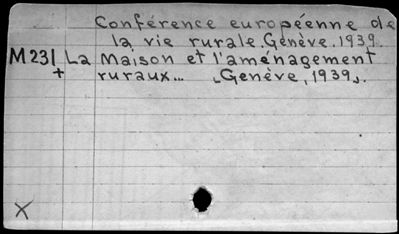 Conférence européenne de
la vie rurale. Genève. 1939.
M231 La Maison et l'aménagement
+ ruraux... [Genève, 1939].
X